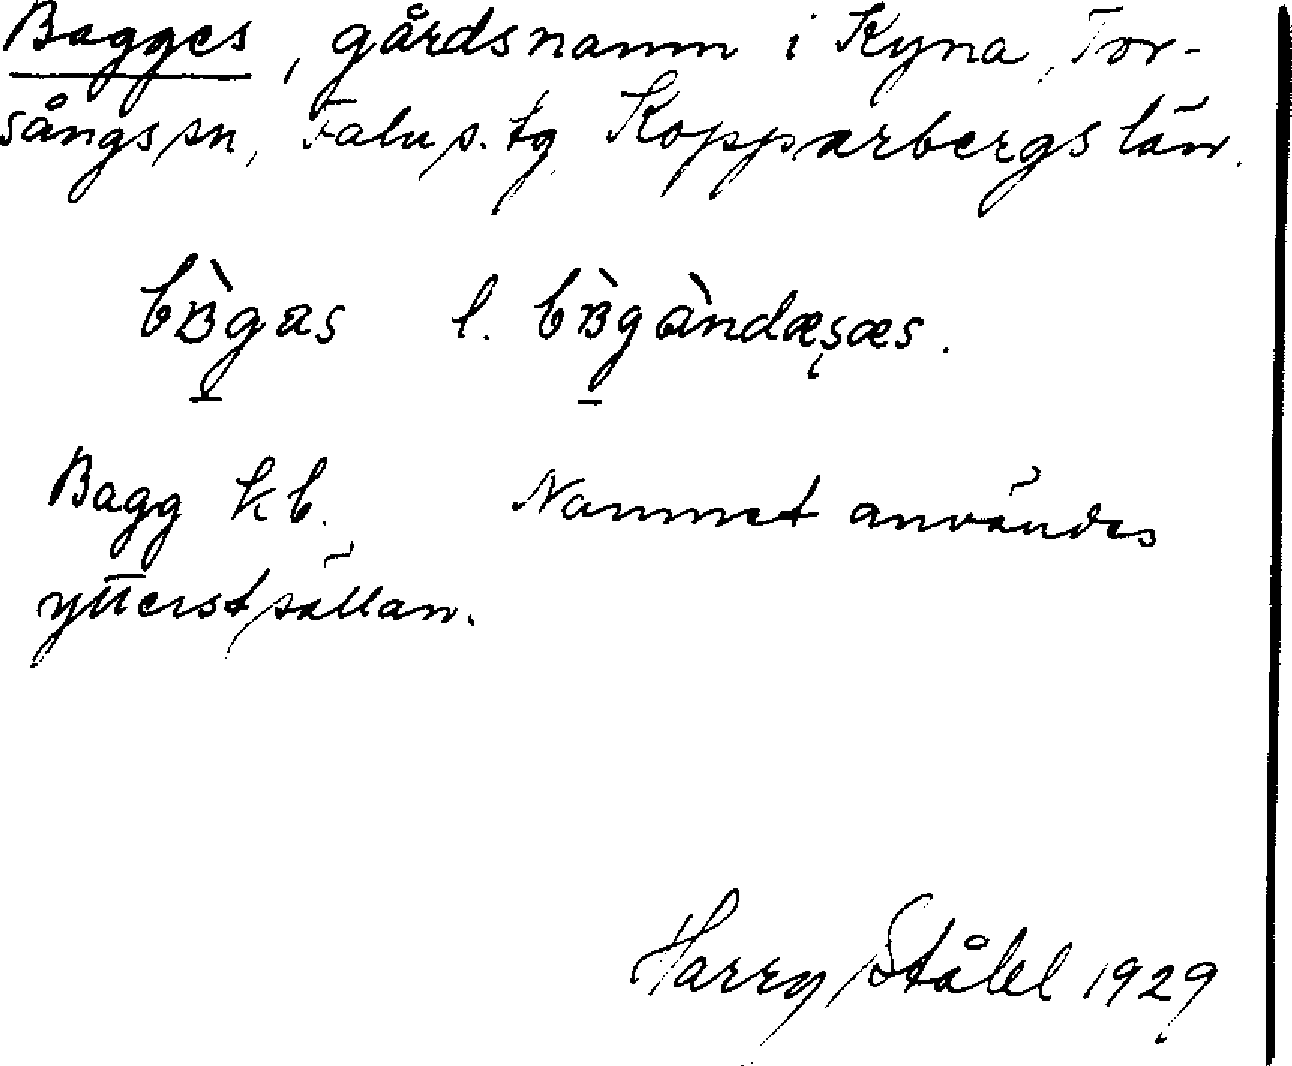 Bagges, gårdsnamn i Kyna, Tor-
sångs sn, Falu s. tg Kopparbergs län.
bʙ̀g̠as l. bʙ̀g̠àndæşæs.
Bagg kb. Namnet användes
ytterst sällan.
Harry Ståhl 1929